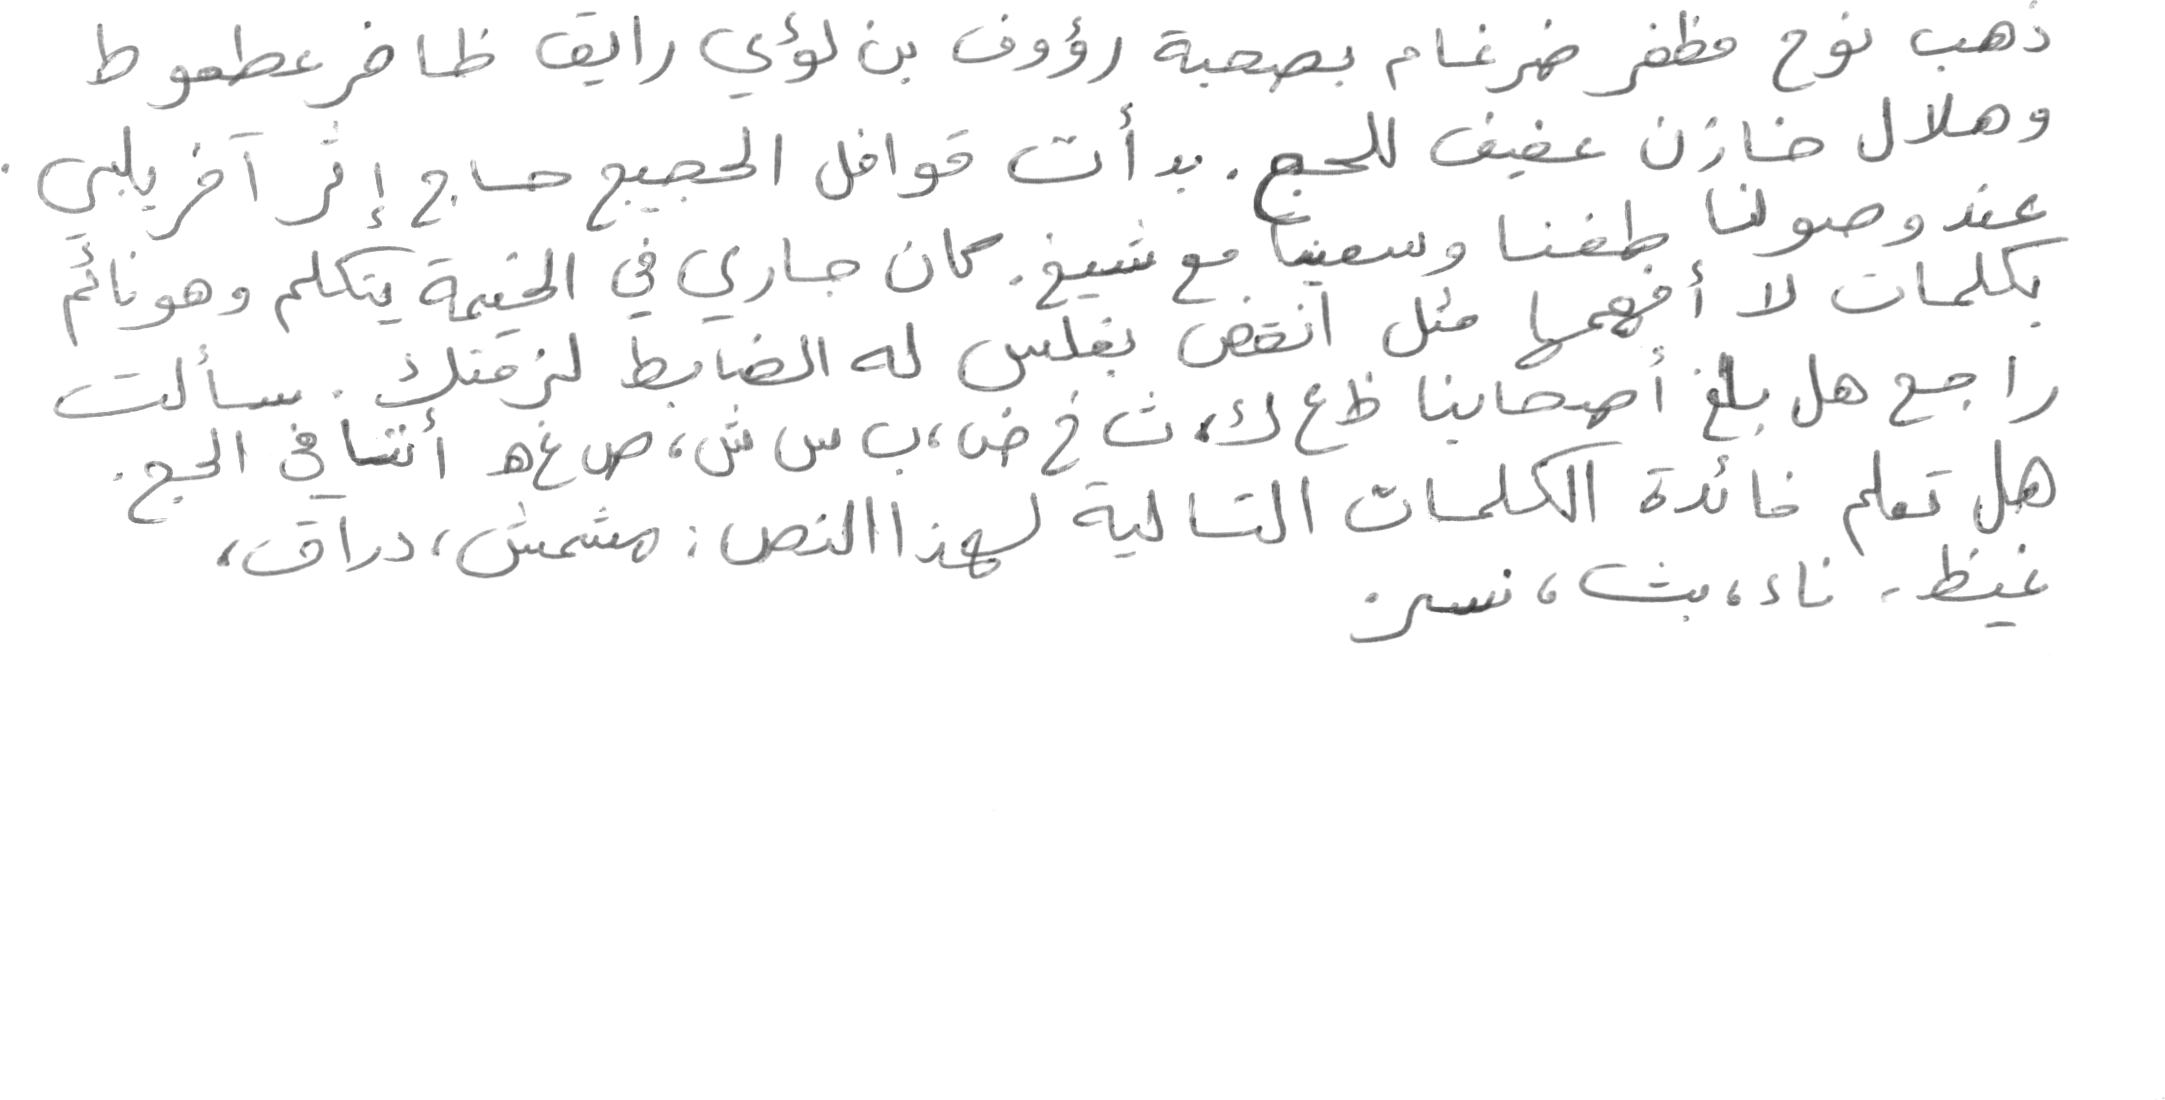 ذهب نوح مظفر ضرغام بصحبة رؤوف بن لؤي رايق ظافر عطعوط
وهلال خازن عفيف للحج. بدأت قوافل الحجيج حاج إثر آخر يلبي.
عند وصولنا طفنا وسعينا مع شيخ. كان جاري في الخيمة يتكلم وهو نائم
بكلمات لا أفهمها مثل انقض بغلس له الضابط لزمتك. سألت
راجع هل بلغ أصحابنا ظ ع ك، ث خ ض، ب س ش، ص غ ه أننا في الحج.
هل تعلم فائدة الكلمات التالية لهذا النص: مشمش، دراق،
غيظ، ناء، بث، نسز